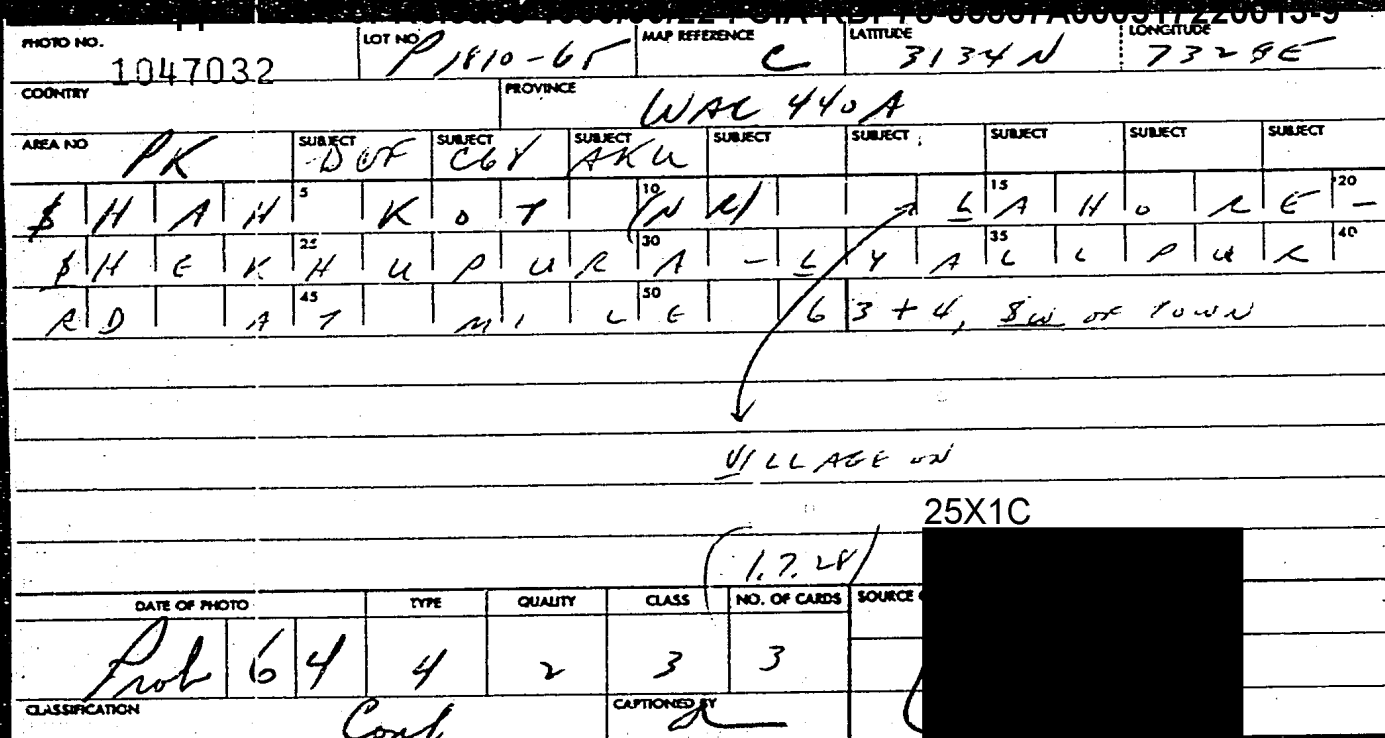 PHOTO NO. 1047032 LOT NO P1810-65 MAP REFERENCE C LATITUDE 3134N LONGITUDE 7328E
COUNTRY PROVINCE WAC 440A
AREA NO PK SUBJECT SUBJECT CGY SUBJECT AKU SUBJECT SUBJECT SUBJECT SUBJECT SUBJECT
5 10 15 20
$HAH KOT (NR) LAHORE-
25 30 35 40
$HEKHUPURA-LYALLPUR
45 50
RD AT MILE 63+4, SW OF TOWN
VILLAGE ON
25X1C
(1.7.28)
DATE OF PHOTO TYPE QUALITY CLASS NO. OF CARDS SOURCE
Prob 64 4 2 3 3
CLASSIFICATION Conf CAPTIONED BY